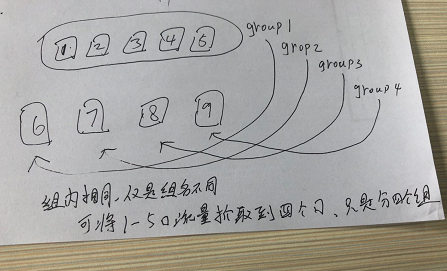 1 2 3 4 5
group1
grop2
group3
group4
6 7 8 9
组内相同,仅是组名不同
可将1-5口流量抓取到四个口、只是分四个组